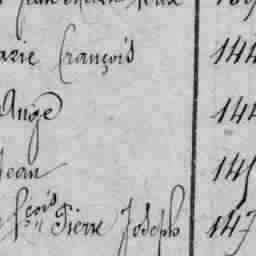 arie François 144
Ange 144
Jean 145
fçois Pierre Joseph 147